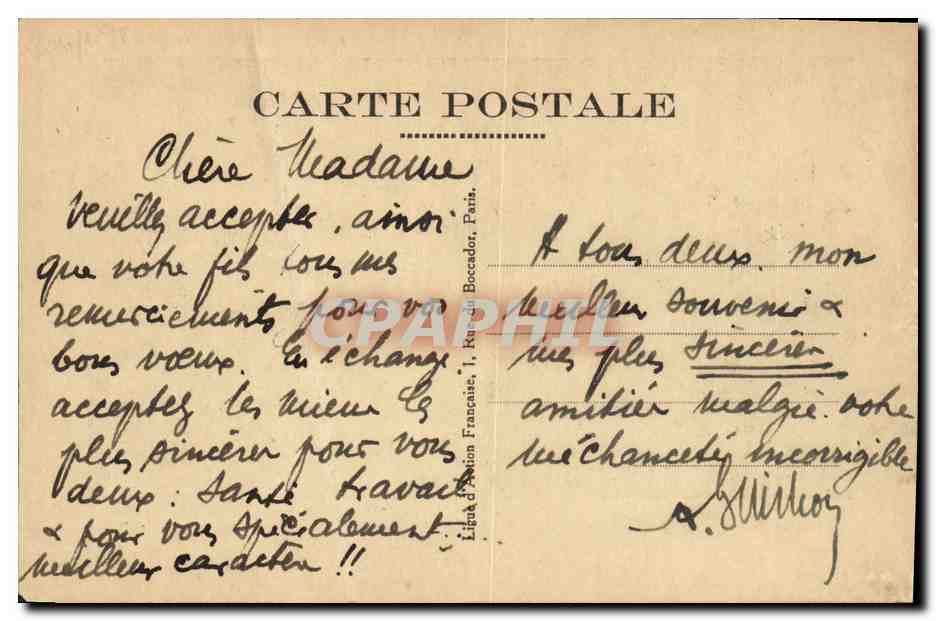 CARTE POSTALE
Chère Madame
Veuillez accepter, ainsi
que votre fils tous mes
remerciements pour vos
bons vœux. En échange
acceptez les mieux les
plus sincères pour vous
deux : santé travail
& pour vous spécialement
meilleur caractère !!
Ligue d'Action Française, 1, Rue du Boccador, Paris.
A tous deux mon
meilleur souvenir &
mes plus sincères
amitiés malgré votre
méchanceté incorrigible
CPAPHIL